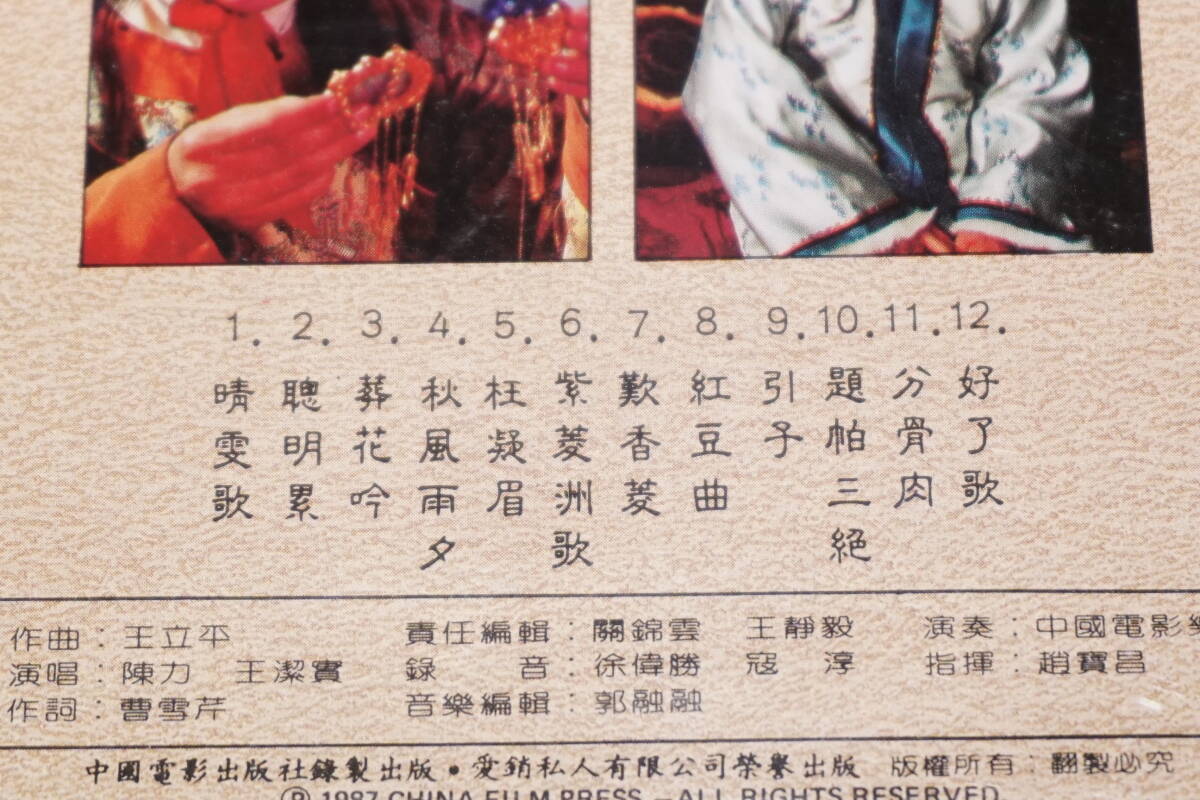 1. 晴雯歌
2. 聰明累
3. 葬花吟
4. 秋風雨夕
5. 枉凝眉
6. 紫菱洲歌
7. 歎香菱
8. 紅豆曲
9. 引子
10. 題帕三絕
11. 分骨肉
12. 好了歌
作曲：王立平 責任編輯：關錦雲 王靜毅 演奏：中國電影樂
演唱：陳力 王潔實 錄音：徐偉勝 寇淳 指揮：趙寶昌
作詞：曹雪芹 音樂編輯：郭融融
中國電影出版社錄製出版•愛銷私人有限公司榮譽出版 版權所有：翻製必究
Ⓟ 1987 CHINA FILM PRESS — ALL RIGHTS RESERVED